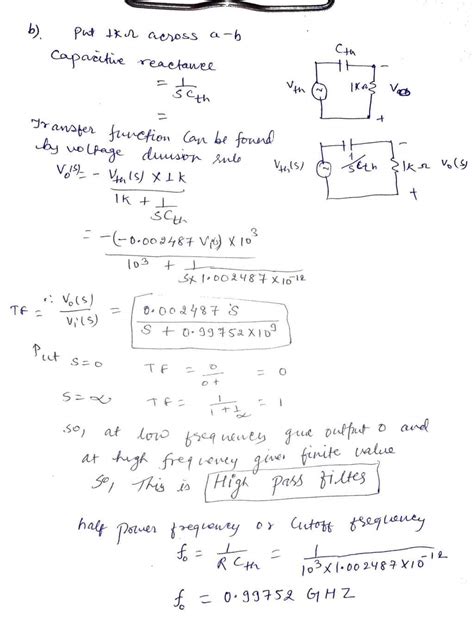 b). Put 1KΩ across a-b
Capacitive reactance
= 1/SCth
=
Cth
Vth
1KΩ
+
Transfer function Can be found
by voltage division rule
Vth(s)
1/SCth
1KΩ
Vo(s)
+
Vo(s) = - Vth(s) × 1K
1K + 1/SCth
= -(-0.002487 Vi(s)) × 10^3
10^3 + 1/S×1.002487×10^-12
TF = ∴ Vo(s)/Vi(s) = 0.002487 S
S + 0.99752×10^9
Put S=0 TF = 0/0+ = 0
S=∝ TF = 1/1+1/∝ = 1
so, at low frequency give output 0 and
at high frequency gives finite value
So, This is High Pass filter
half power frequency or Cutoff frequency
fo = 1/R Cth = 1/10^3×1.002487×10^-12
fo = 0.99752 GHZ